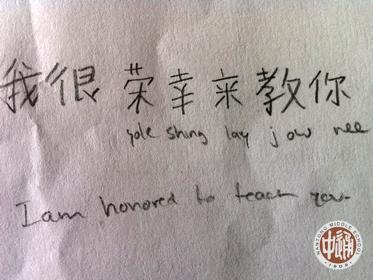 我很荣幸来教你
yole shing lay jow nee
I am honored to teach you.
NANTONG MIDDLE SCHOOL
中通
1909